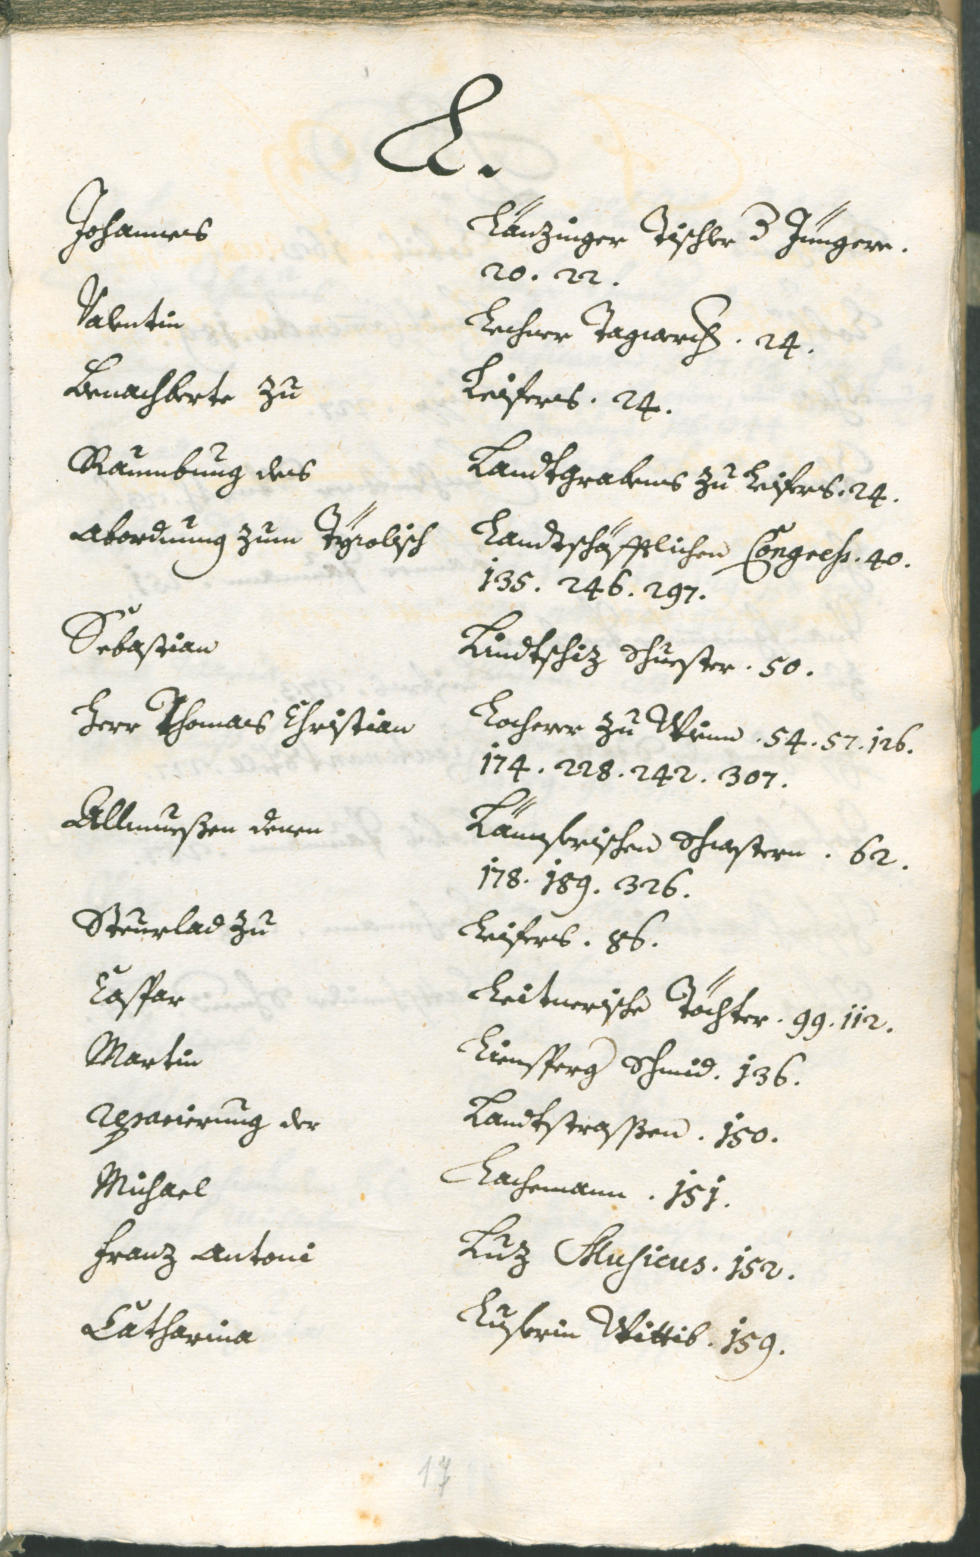 L.
Johannes Länzinger Tischler d Jüngere.
20. 22.
Valentin Lechner Tagwerch. 24.
Benachberte zu Leifers. 24.
Raumbung des Landtgrabens zu Leifers. 24.
Abordnung zum Tÿrolisch Landtschäfftlichen Congress. 40.
135. 246. 297.
Sebastian Lindtschiz Schuester. 50.
Herr Thomas Christian Locherer zu 54. 57. 126.
174. 228. 242. 307.
Allmueßen denen Schwestern. 62.
178. 189. 326.
Steurlad zu Leifers. 86.
Caspar Leitnerische Töchter. 99. 112.
Martin Liensperg Schmid. 136.
reparierung der Landtstrassen. 150.
Michael Lachemann. 151.
Franz Antoni Luz Musicus. 152.
Catharina Wittib. 159.
17